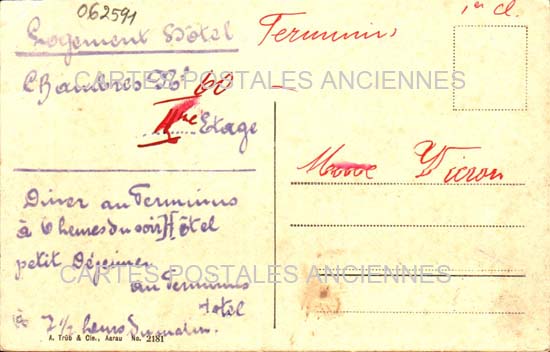 062591
1re cl.
Logement Hôtel Terminus
Chambres No 60
IIme Etage
Diner au Terminus
à 6 heures du soir Hôtel
petit Déjeuner
au Terminus
Hotel
à 7 1/2 heurs du matin.
A. Trüb & Cie., Aarau No. 2181
CARTES POSTALES ANCIENNES
CARTES POSTALES ANCIENNES